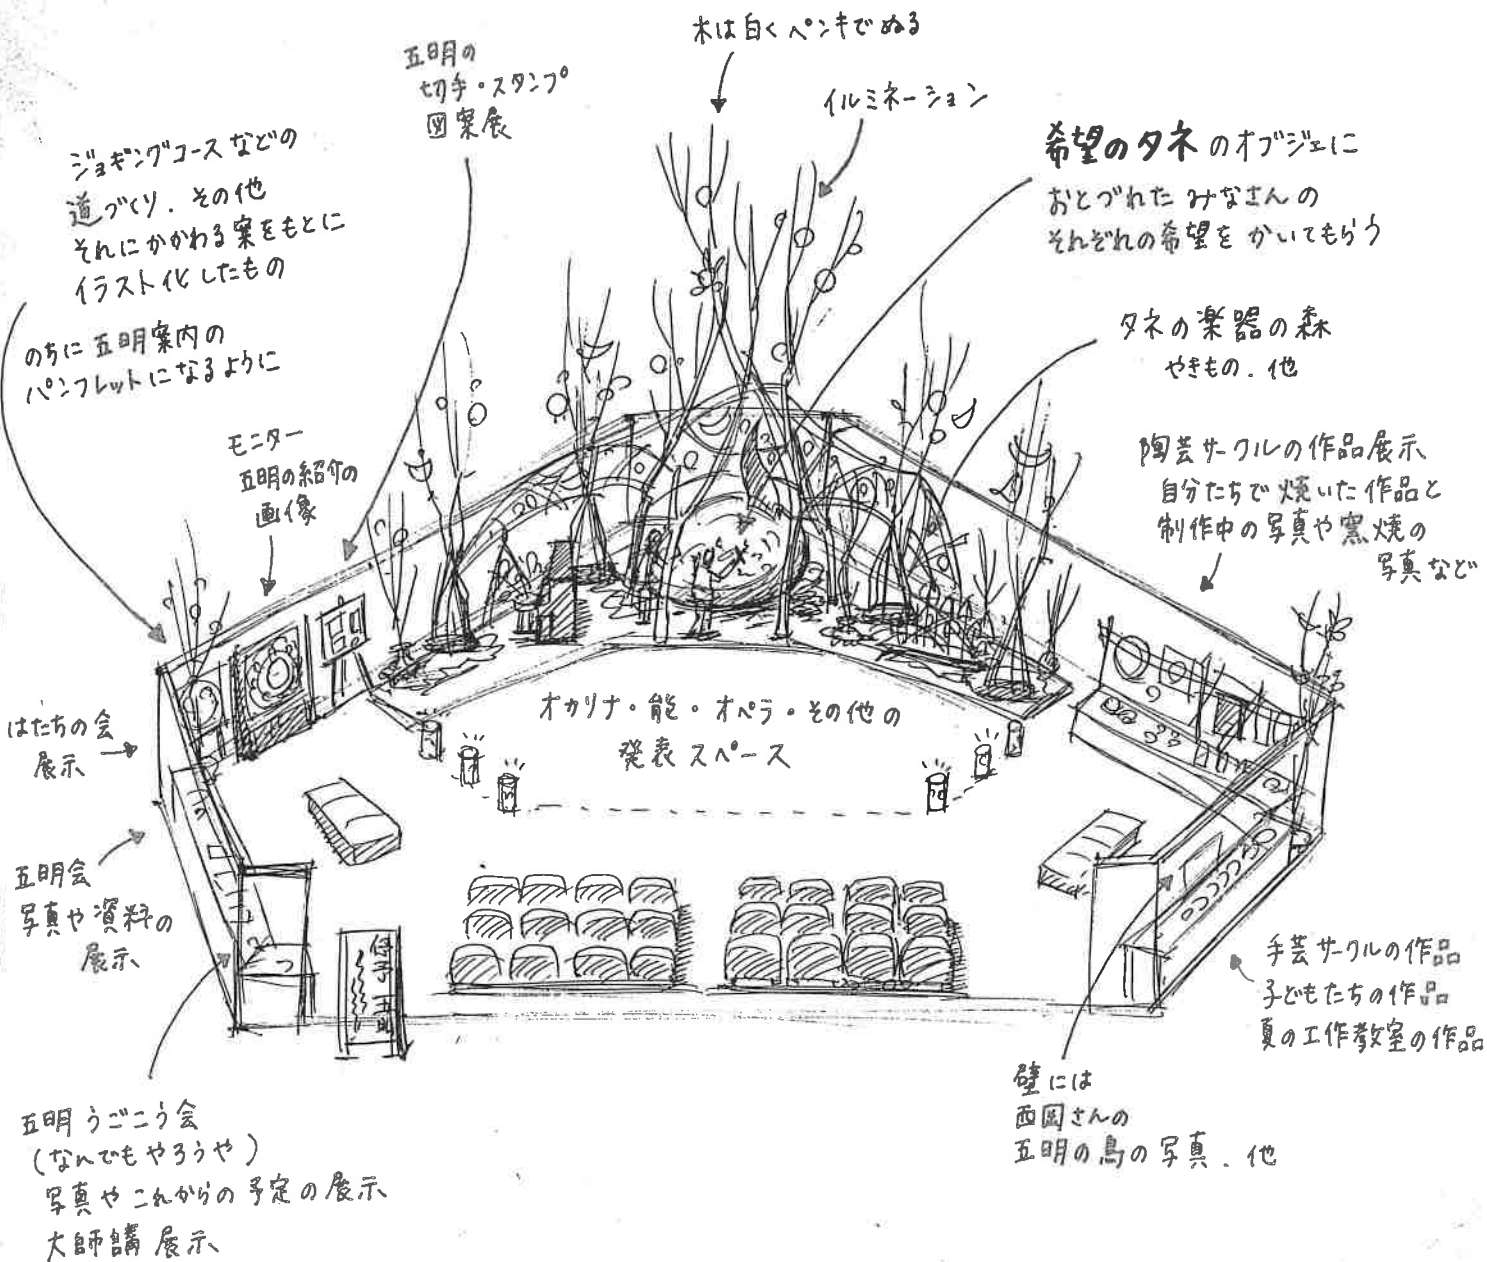 木は白くペンキでぬる
五明の
切手・スタンプ
図案展
イルミネーション
ジョギングコースなどの
道づくり、その他
それにかかわる案をもとに
イラスト化したもの
のちに五明案内の
パンフレットになるように
希望のタネのオブジェに
おとづれたみなさんの
それぞれの希望をかいてもらう
タネの楽器の森
やきもの、他
モニター
五明の紹介の
画像
陶芸サークルの作品展示
自分たちで焼いた作品と
制作中の写真や窯焼の
写真など
オカリナ・能・オペラ・その他の
発表スペース
はたちの会
展示
五明会
写真や資料の
展示
手芸サークルの作品
子どもたちの作品
夏の工作教室の作品
壁には
西岡さんの
五明の鳥の写真、他
五明うごこう会
(なんでもやろうや)
写真やこれからの予定の展示
大師講展示